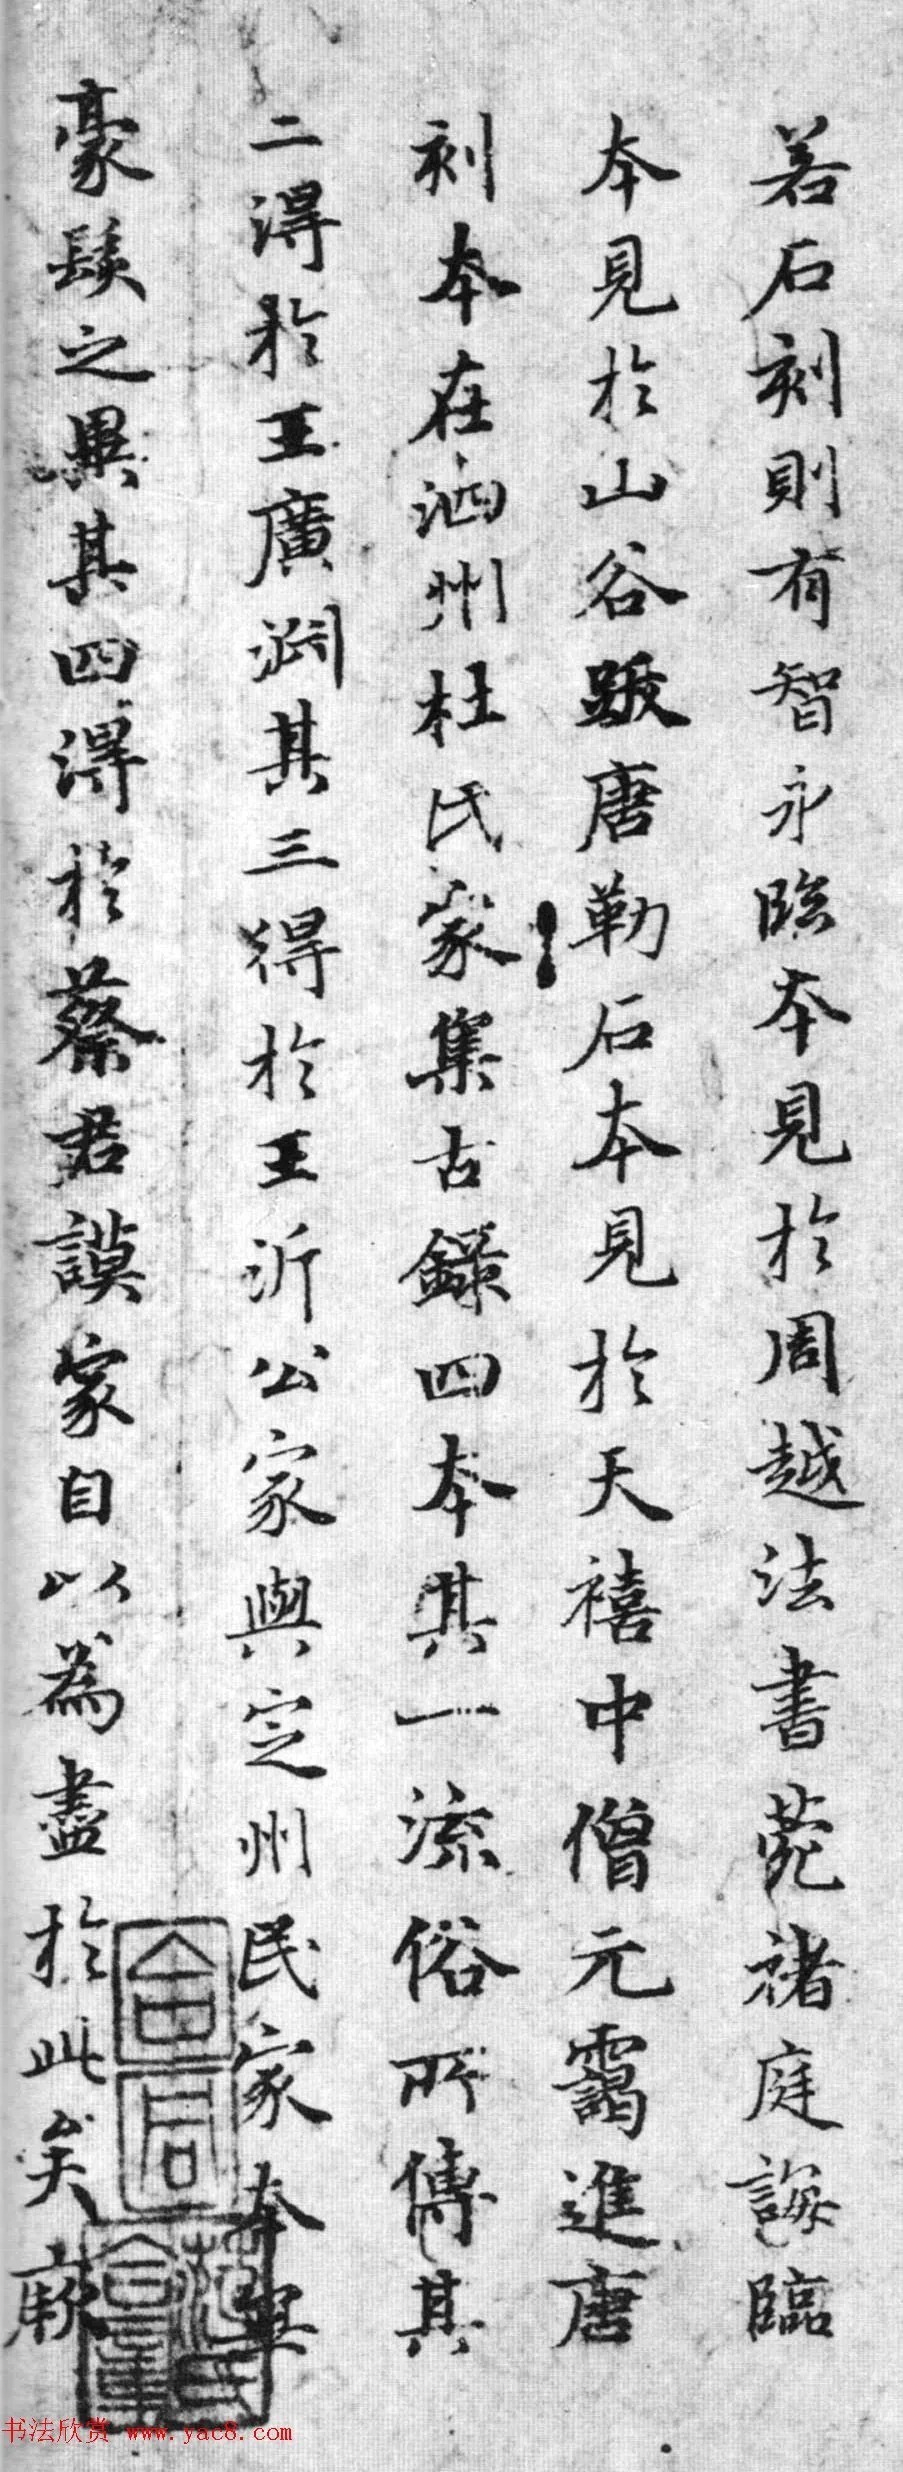 若石刻則有智永臨本見於周越法書苑禇庭誨臨
本見於山谷跋唐勒石本見於天禧中僧元靄進唐
刻本在泗州杜氏家集古錄四本其一流俗所傳其
二得於王廣淵其三得於王沂公家與定州民家本無
豪髮之異其四得於蔡君謨家自以為盡於此矣厥
书法欣赏 www.yac8.com